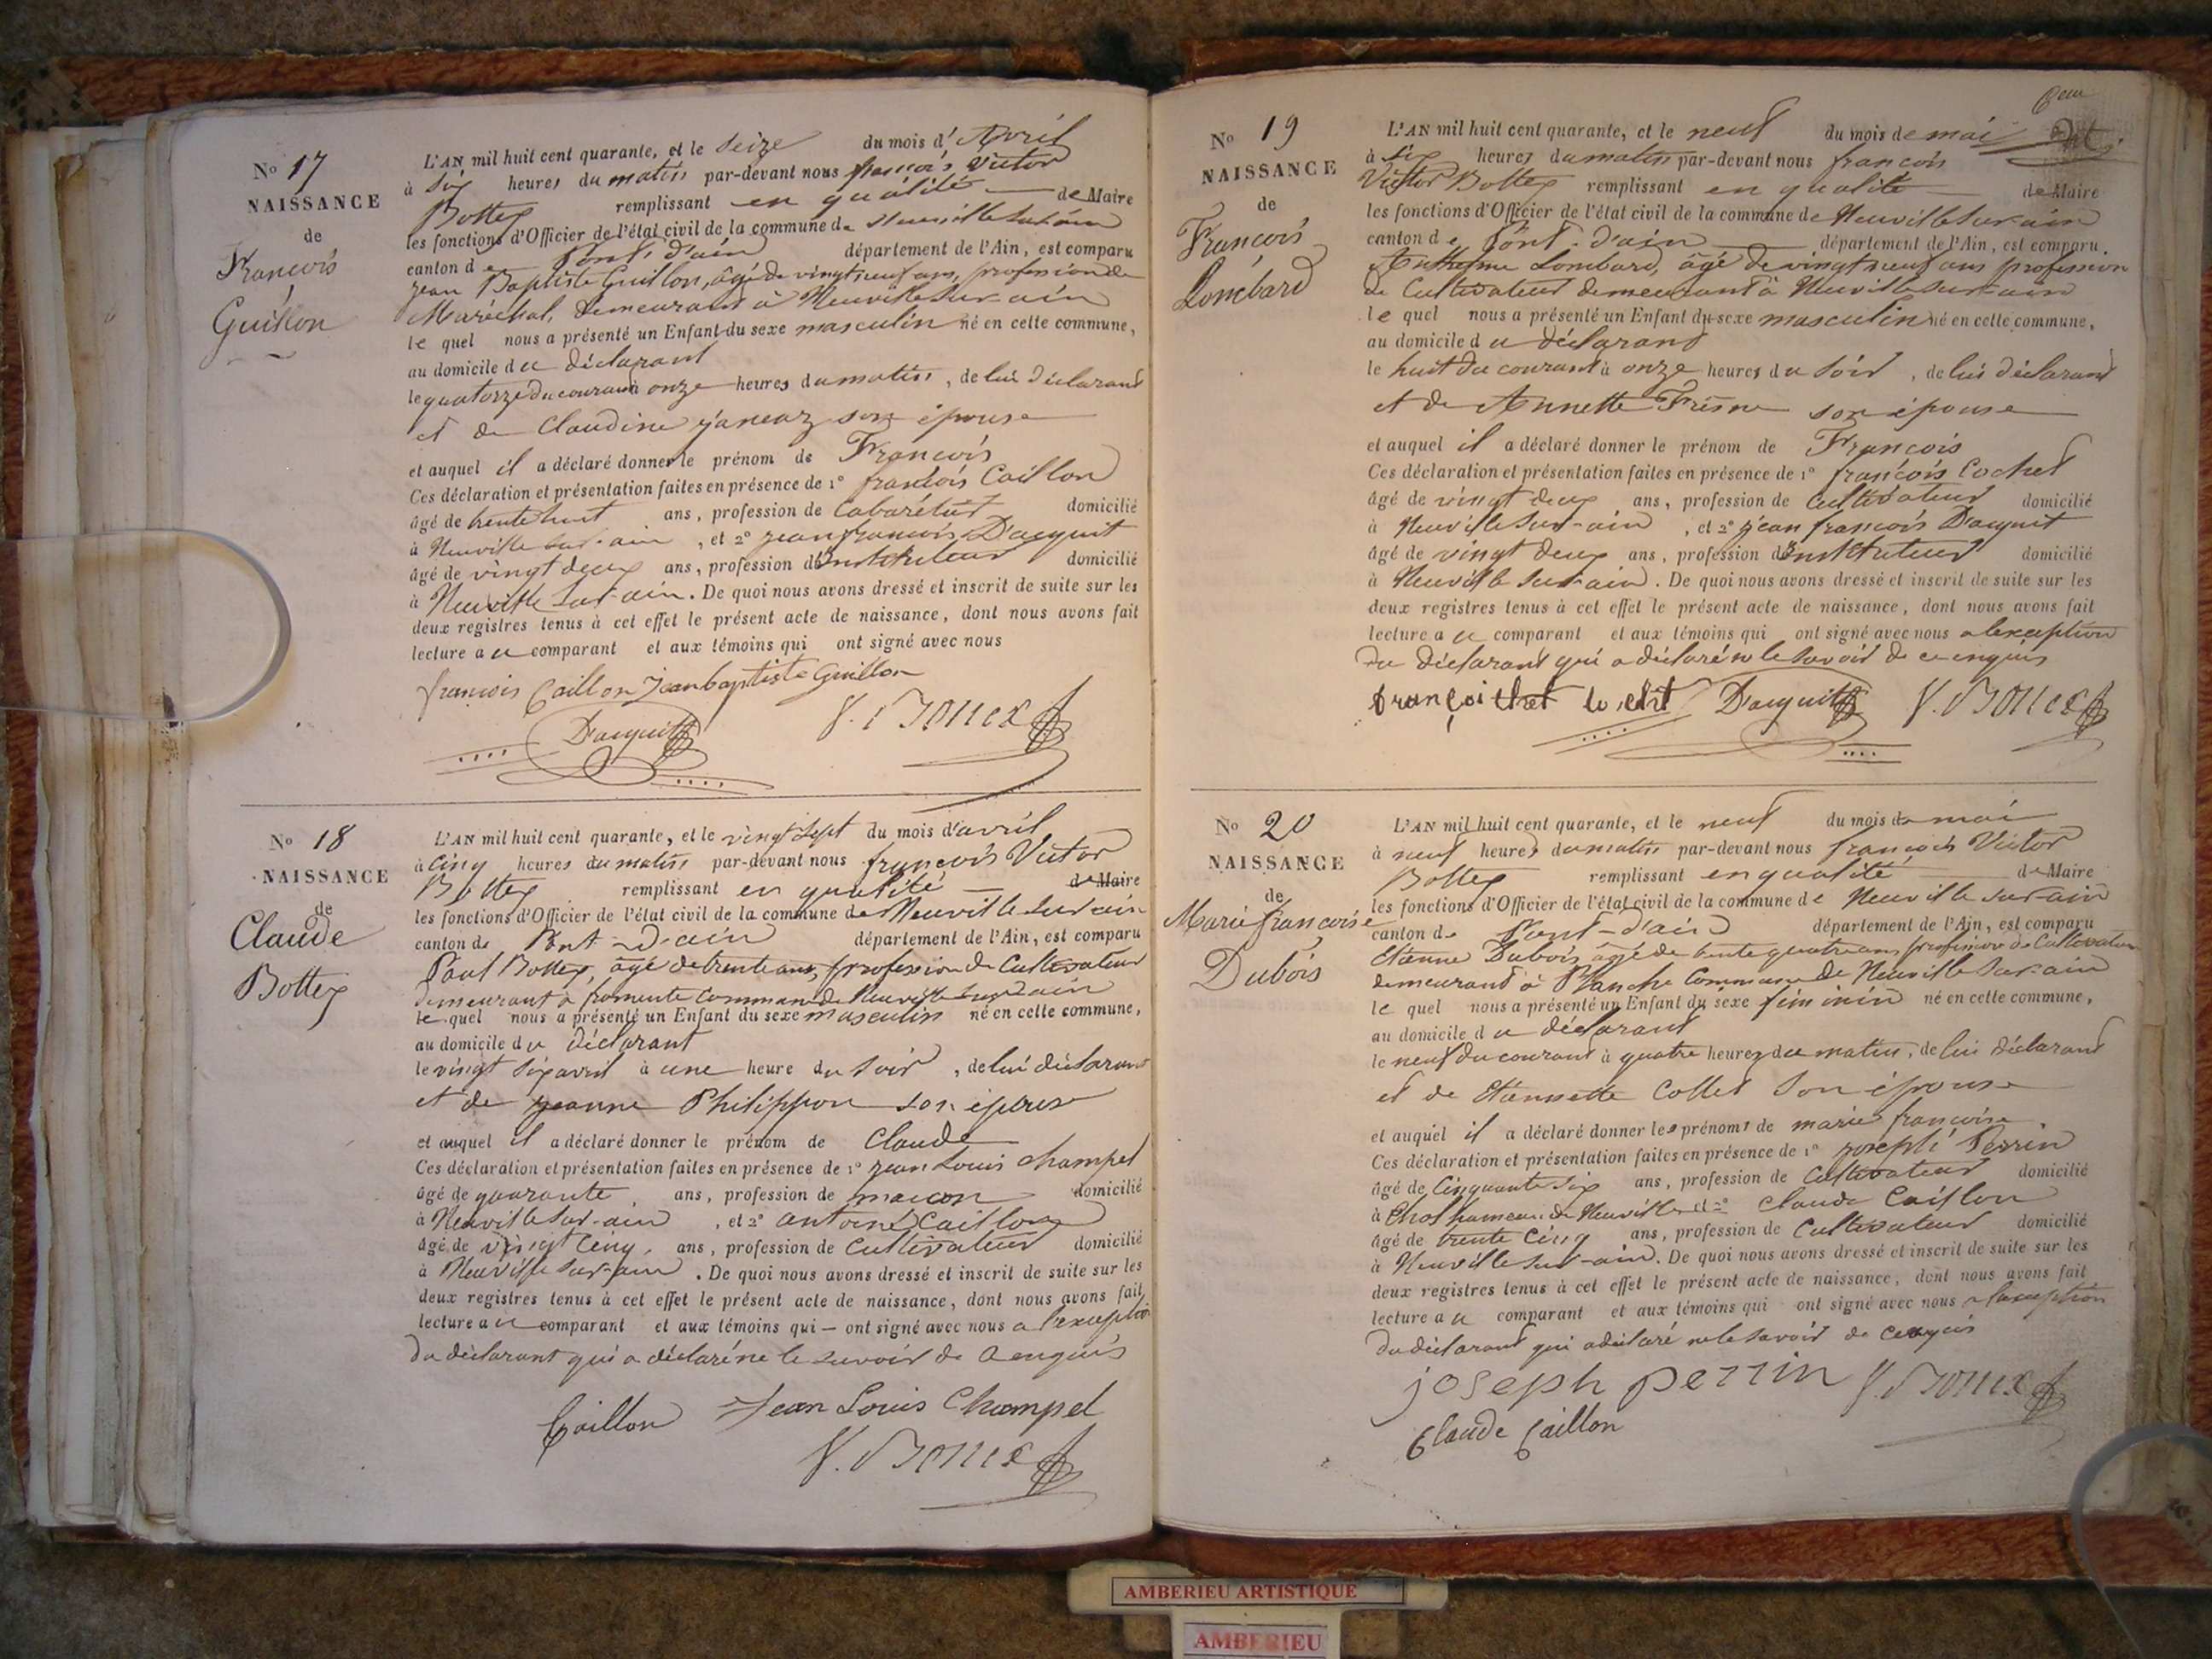 No 17
NAISSANCE
de
François
Guillon
L'AN mil huit cent quarante, et le seize du mois d'Avril
à six heures du matin par-devant nous françois Victor
Bottex remplissant en qualité de Maire
les fonctions d'Officier de l'état civil de la commune de Neuville sur ain
canton de Pont d'ain département de l'Ain, est comparu
jean Baptiste Guillon, âgé de vingt neuf ans, profession de
Maréchal, demeurant à Neuville sur ain
le quel nous a présenté un Enfant du sexe masculin né en cette commune,
au domicile du déclarant
le quatorze du courant à onze heures du matin, de lui déclarant
et de Claudine son épouse
et auquel il a déclaré donner le prénom de François
Ces déclaration et présentation faites en présence de 1º françois Caillon
âgé de trente huit ans, profession de Cabaretier domicilié
à Neuville sur-ain, et 2º jean françois D'acquit
âgé de vingt deux ans, profession d'Instituteur domicilié
à Neuville sur-ain. De quoi nous avons dressé et inscrit de suite sur les
deux registres tenus à cet effet le présent acte de naissance, dont nous avons fait
lecture au comparant et aux témoins qui ont signé avec nous
françois Caillon Jean baptiste Guillon
D'acquit V. Bottex
No 18
NAISSANCE
de
Claude
Bottex
L'AN mil huit cent quarante, et le vingt sept du mois d'avril
à cinq heures du matin par-devant nous françois Victor
Bottex remplissant en qualité de Maire
les fonctions d'Officier de l'état civil de la commune de Neuville sur ain
canton de Pont-d'ain département de l'Ain, est comparu
Paul Bottex, âgé de trente ans, profession de Cultivateur
demeurant à fromente Commune de Neuville sur ain
le quel nous a présenté un Enfant du sexe masculin né en cette commune,
au domicile du déclarant
le vingt six avril à une heure du soir, de lui déclarant
et de jeanne Philippon son épouse
et auquel il a déclaré donner le prénom de Claude
Ces déclaration et présentation faites en présence de 1º jean Louis Champel
âgé de quarante ans, profession de maçon domicilié
à Neuville sur-ain, et 2º antoine Caillon
âgé de vingt cinq ans, profession de Cultivateur domicilié
à Neuville sur-ain. De quoi nous avons dressé et inscrit de suite sur les
deux registres tenus à cet effet le présent acte de naissance, dont nous avons fait
lecture au comparant et aux témoins qui ont signé avec nous a l'exception
du déclarant qui a déclaré ne le savoir de ce enquis
Caillon Jean Louis Champel
V. Bottex
No 19
NAISSANCE
de
François
Lombard
L'AN mil huit cent quarante, et le neuf du mois de mai
à six heures du matin par-devant nous françois
Victor Bottex remplissant en qualité de Maire
les fonctions d'Officier de l'état civil de la commune de Neuville sur-ain
canton de Pont-d'ain département de l'Ain, est comparu
Anthelme Lombard, âgé de vingt neuf ans profession
de Cultivateur demeurant à Neuville sur-ain
le quel nous a présenté un Enfant du sexe masculin né en cette commune,
au domicile du déclarant
le huit du courant à onze heures du soir, de lui déclarant
et de Annette Frêsne son épouse
et auquel il a déclaré donner le prénom de François
Ces déclaration et présentation faites en présence de 1º françois Cochet
âgé de vingt deux ans, profession de Cultivateur domicilié
à Neuville sur-ain, et 2º jean françois D'acquit
âgé de vingt deux ans, profession d'Instituteur domicilié
à Neuville sur-ain. De quoi nous avons dressé et inscrit de suite sur les
deux registres tenus à cet effet le présent acte de naissance, dont nous avons fait
lecture au comparant et aux témoins qui ont signé avec nous a l'exception
du déclarant qui a déclaré ne le savoir de ce enquis
D'acquit V. Bottex
No 20
NAISSANCE
de
Marie françoise
Dubois
L'AN mil huit cent quarante, et le neuf du mois de mai
à neuf heures du matin par-devant nous françois Victor
Bottex remplissant en qualité de Maire
les fonctions d'Officier de l'état civil de la commune de Neuville sur ain
canton de Pont-d'ain département de l'Ain, est comparu
Etienne Dubois, âgé de trente quatre ans, profession de Cultivateur
demeurant à Planche Commune de Neuville sur-ain
le quel nous a présenté un Enfant du sexe féminin né en cette commune,
au domicile du déclarant
le neuf du courant à quatre heures du matin, de lui déclarant
et de Etiennette Collet son épouse
et auquel il a déclaré donner les prénoms de marie françoise
Ces déclaration et présentation faites en présence de 1º joseph Perrin
âgé de Cinquante six ans, profession de Cultivateur domicilié
à Chol hameau de Neuville et 2º Claude Caillon
âgé de trente cinq ans, profession de Cultivateur domicilié
à Neuville sur-ain. De quoi nous avons dressé et inscrit de suite sur les
deux registres tenus à cet effet le présent acte de naissance, dont nous avons fait
lecture au comparant et aux témoins qui ont signé avec nous a l'exception
du déclarant qui a déclaré ne le savoir de ce enquis
joseph perrin V. Bottex
Claude Caillon
AMBERIEU ARTISTIQUE
AMBERIEU